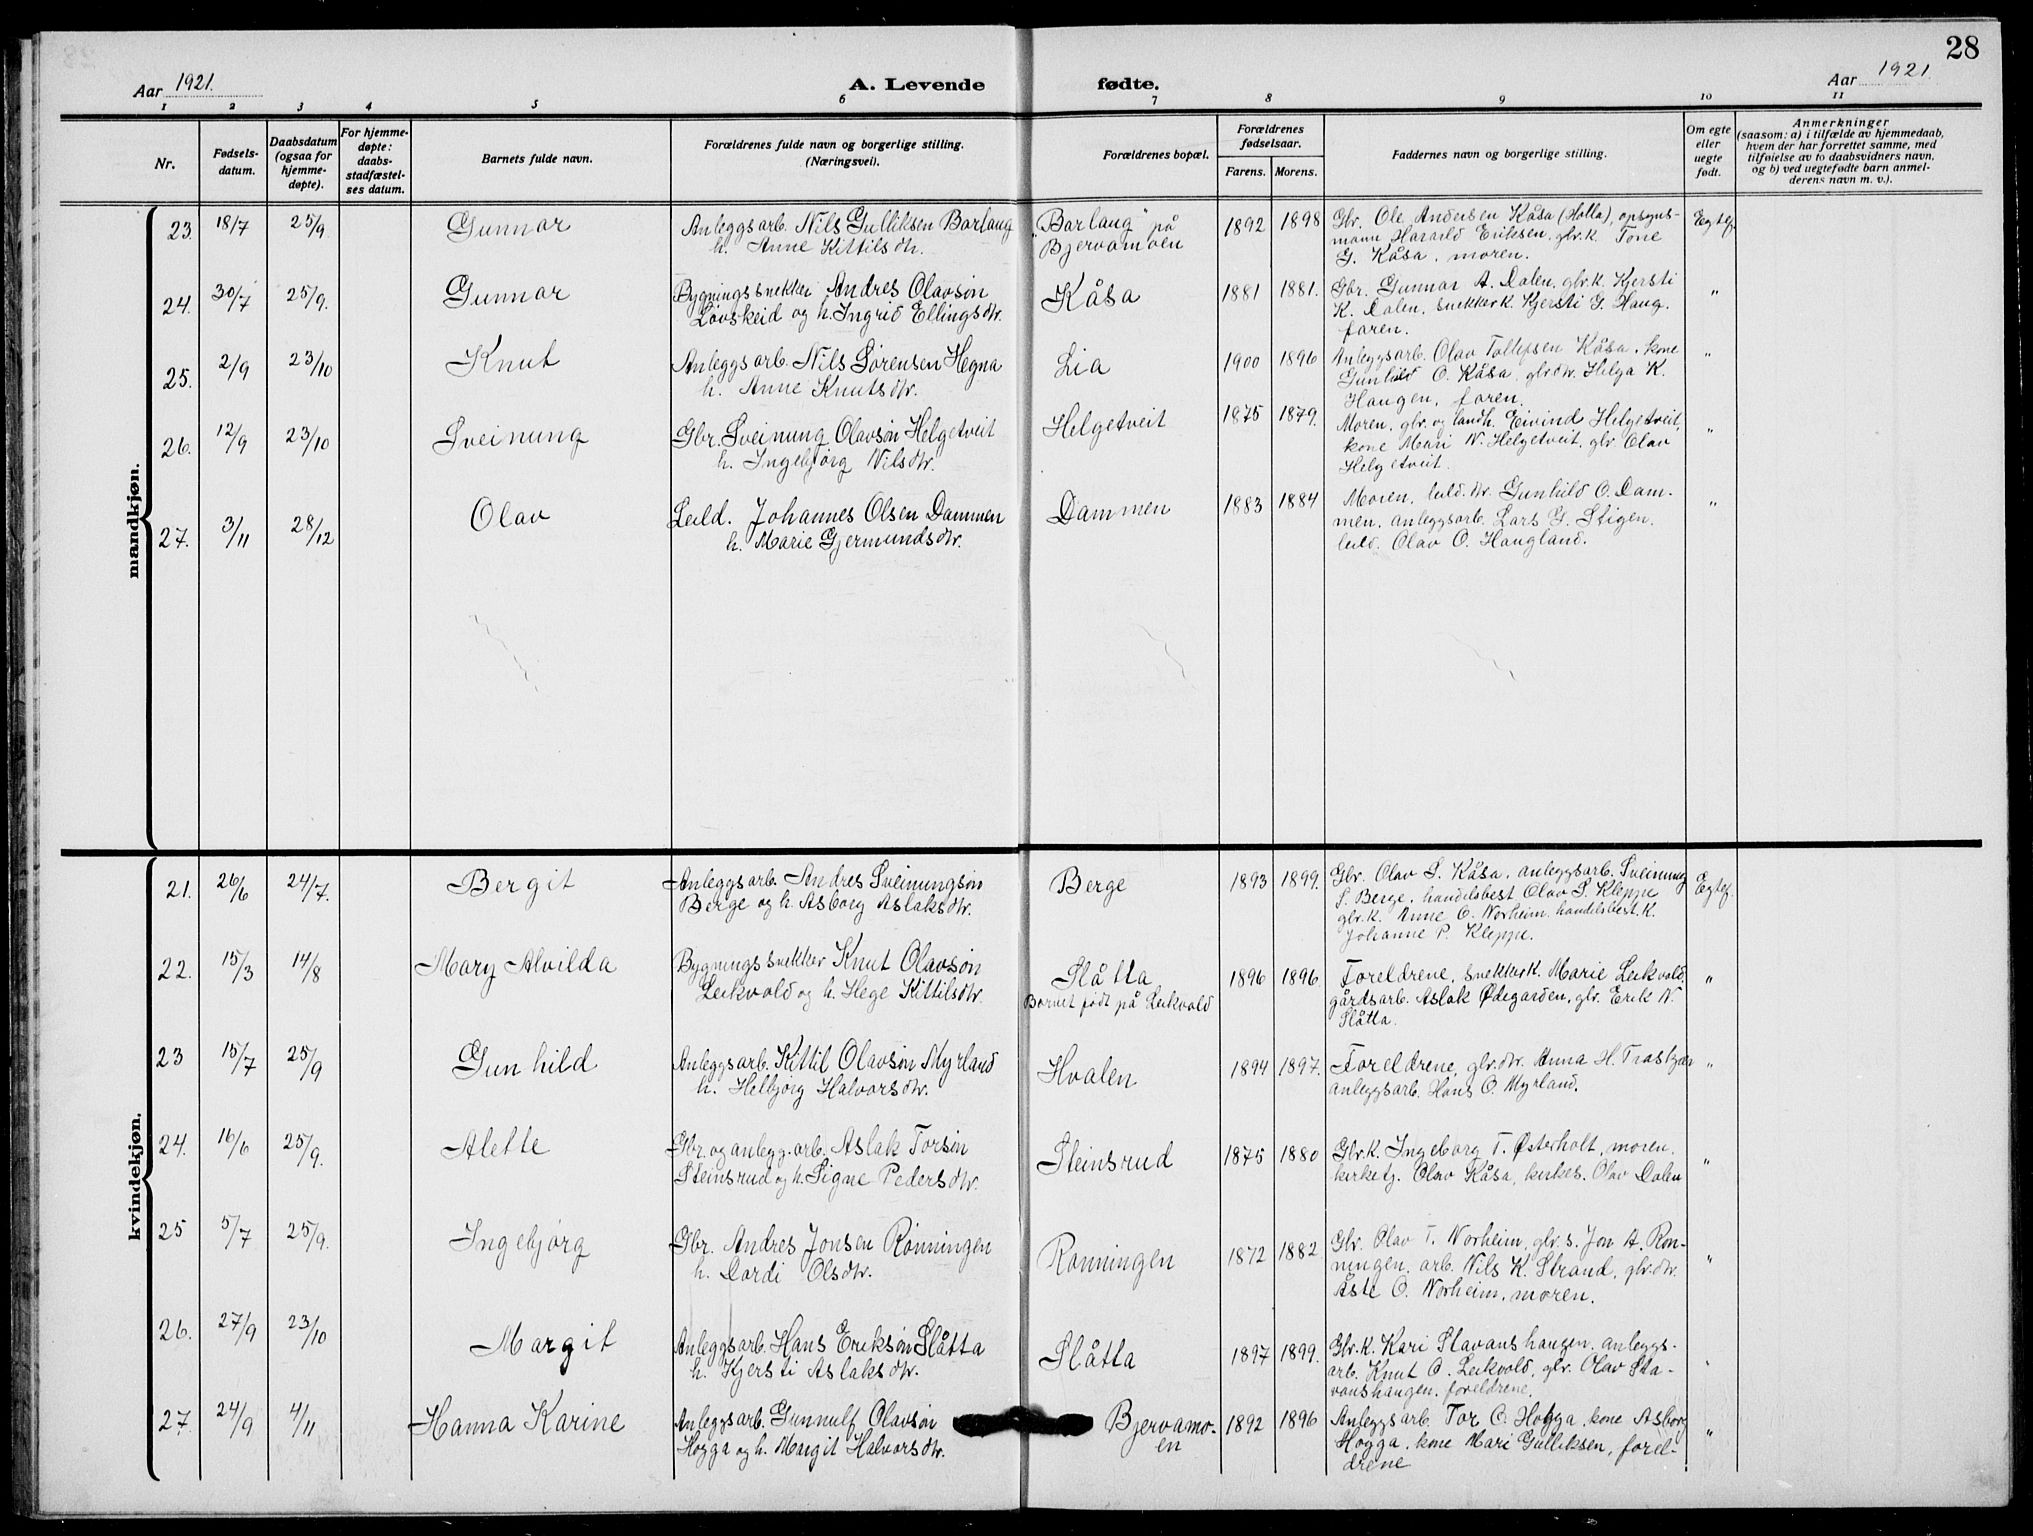 28
Aar 1921.
A. Levende
fødte.
Aar 1921.
1 2 3 4 5 6 7 8 9 10 11
Nr.
Fødsels-
datum.
Daabsdatum
(ogsaa for
hjemme-
døpte).
For hjemme-
døpte:
daabs-
stadfæstel-
ses datum.
Barnets fulde navn.
Forældrenes fulde navn og borgerlige stilling.
(Næringsvei).
Forældrenes bopæl.
Forældrenes
fødselsaar.
Farens. Morens.
Faddernes navn og borgerlige stilling.
Om egte
eller
uegte
født.
Anmerkninger
(saasom: a) i tilfælde av hjemmedaab,
hvem der har forrettet samme, med
tilføielse av to daabsvidners navn,
og b) ved uegtefødte barn anmel-
derens navn m. v.).
mandkjøn.
23. 18/7 25/9 Gunnar
Anleggsarb. Nils Gulliksen Barlaug
h. Anne Kittilsdtr.
"Barlaug" på
Bjervamoen
1892 1898
Gbr. Ole Andersen Kåsa (Holla), opsyns-
mann Harald Eriksen, gbr.k. Tone
G. Kåsa, moren.
Egtef.
24. 30/7 25/9. Gunnar
Bygningssnekker Andres Olavsøn
Lovskeid og h. Ingrid Ellingsdtr.
Kåsa
1881 1881.
Gbr. Gunnar A. Dalen, gbr.k. Kjersti
K. Dalen, snekkerk. Kjersti G. Haug.
faren.
"
25. 2/9 23/10 Knut
Anleggsarb. Nils Sørensen Hegna
h. Anne Knutsdtr.
Lia
1900 1896
Anleggsarb. Olav Tollefsen Kåsa, kone
Gunhild O. Kåsa, gbr.dtr. Helga K.
Haugen, faren.
"
26. 12/9 23/10 Sveinung
Gbr. Sveinung Olavsøn Helgetveit
h. Ingebjørg Nilsdtr.
Helgetveit
1875 1879.
Moren, gbr. og landh. Eivind Helgetveit,
kone Mari N. Helgetveit, gbr. Olav
Helgetveit.
"
27. 3/11 28/12 Olav
Leild. Johannes Olsen Dammen
h. Marie Gjermundsdtr.
Dammen
1883 1884
Moren, leild.dtr. Gunhild O. Dam-
men, anleggsarb. Lars G. Stigen.
leild. Olav O. Haugland.
"
kvindekjøn.
21. 26/6 24/7. Bergit
Anleggsarb. Andres Sveinungsøn
Berge og h. Asborg Aslaksdtr.
Berge
1893 1899.
Gbr. Olav S. Kåsa, anleggsarb. Sveinung
S. Berge, handelsbest Olav S. Kleppe
gbr.k. Anne O. Norheim. handelsbest.k.
Johanne P. Kleppe.
Egtef.
22. 15/3 14/8 Mary Alvilda
Bygningssnekker Knut Olavsøn
Leikvold og h. Hege Kittilsdtr.
Slåtta
Barnet født på Leikvold
1896 1896
Foreldrene, snekkerk. Marie Leikvold.
gårdsarb. Aslak Ødegarden, gbr. Erik N.
Slåtta.
"
23 15/7 25/9 Gunhild
Anleggsarb. Kittil Olavsøn Myrland
h. Helbjørg Halvorsdtr.
Hvalen
1894 1897.
Foreldrene, gbr.dtr. Anna H. Trastjær
anleggsarb. Hans O. Myrland.
"
24. 16/6 25/9. Alette
Gbr. og anlegg.arb. Aslak Torsøn
Steinsrud og h. Signe Pedersdtr.
Steinsrud
1875 1880
Gbr.k. Ingeborg T. Østerholt, moren,
kirketj. Olav Kåsa, kirkes. Olav Dalen
"
25 5/7 25/9. Ingebjørg
Gbr. Andres Jonsen Rønningen
h. Dordi Olsdtr.
Rønningen
1872 1882
Gbr. Olav T. Norheim, gbr.s. Jon A. Røn-
ningen, arb. Nils K. Strand, gbr.dtr.
Åste O. Norheim, moren.
"
26. 27/9 23/10 Margit
Anleggsarb. Hans Eriksøn Slåtta
h. Kjersti Aslaksdtr.
Slåtta
1897 1899.
Gbr.k. Kari Stavanshaugen, anleggs-
arb. Knut O. Leikvold, gbr. Olav Sta-
vanshaugen, foreldrene.
"
27. 24/9 4/11 Hanna Karine
Anleggsarb. Gunnulf Olavsøn
Hogga og h. Margit Halvorsdtr.
Bjervamo-
en
1892 1896
Anleggsarb. Tor O. Hogga, kone Asborg
Hogga, kone Mari Gulliksen, forel-
drene
"